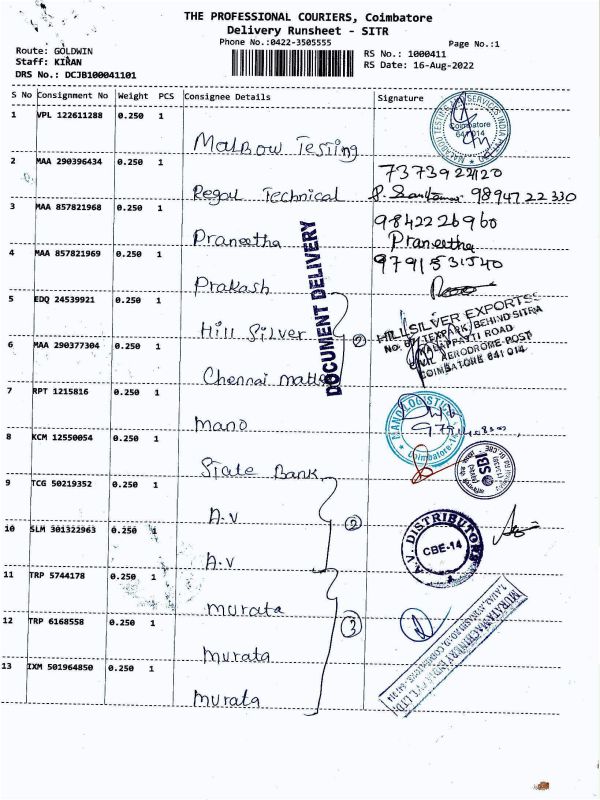 THE PROFESSIONAL COURIERS, Coimbatore
Delivery Runsheet - SITR
Phone No.:0422-3505555
Page No.:1
Route: GOLDWIN
Staff: KIRAN
DRS No.: DCJB100041101
RS No.: 1000411
RS Date: 16-Aug-2022
S No Consignment No Weight PCS Consignee Details Signature
1 VPL 122611288 0.250 1
Malbow Testing
Coimbatore
641 014
2 MAA 290396434 0.250 1
7373922420
Regal Technical 98947 22 330
3 MAA 857821968 0.250 1
9842226960
Praneetha Praneetha
4 MAA 857821969 0.250 1
9791531540
Prakash
DOCUMENT DELIVERY
5 EDQ 24539921 0.250 1
Hill Silver 2
HILLSILVER EXPORTS
BEHIND SITRA
KALAPPATTI ROAD
CIVIL AERODROME POST
COIMBATORE 641 014
6 MAA 290377304 0.250 1
Chennai
7 RPT 1215816 0.250 1
Mano
MANO LOGISTICS
Coimbatore-14
8 KCM 12550054 0.250 1
State Bank
SBI
9 TCG 50219352 0.250 1
A.V 2
A.V. DISTRIBUTORS
CBE-14
10 SLM 301322963 0.250 1
A.V
11 TRP 5744178 0.250 1
murata
12 TRP 6168558 0.250 1
3
murata
MURATA MACHINERY INDIA PVT. LTD.
13 IXM 501964850 0.250 1
murata